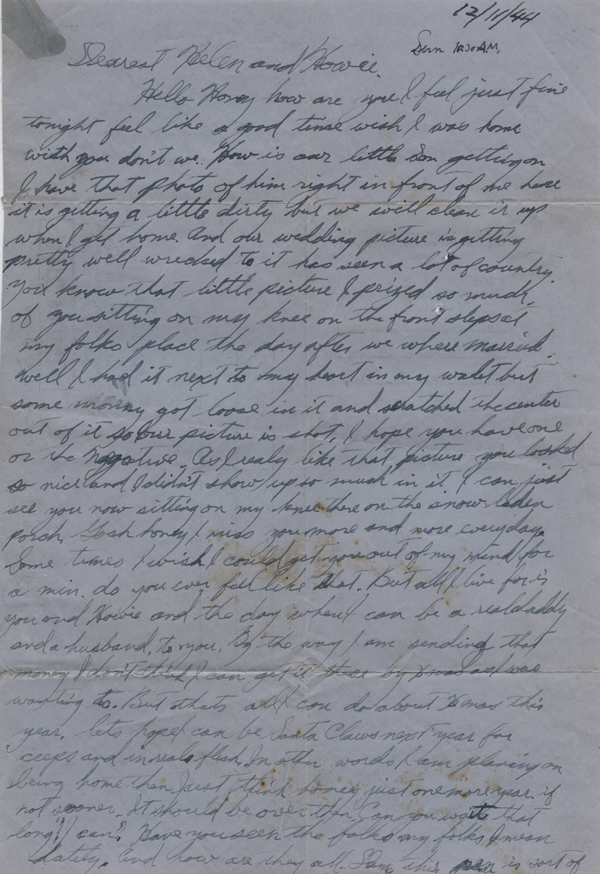 12/11/44
Sun 10:30 A.M.
Dearest Helen and Howie.
Hello Honey how are you I feel just fine
tonight feel like a good time wish I was home
with you don't we. How is our little Son getting on
I have that photo of him right in front of me here
it is getting a little dirty but we will clean it up
when I get home. And our wedding picture is getting
pretty well wrecked to it has seen a lot of country.
You know that little picture I prized so much,
of you sitting on my knee on the front steps at
my folks place the day after we where married.
well I had it next to my heart in my walet but
some money got loose in it and scratched the center
out of it so our picture is shot, I hope you have one
or the Negative. As I realy like that picture you looked
so nice and I didn't show up so much in it I can just
see you now sitting on my knee there on the snow laden
porch. Gosh honey I miss you more and more everyday.
Some times I wish I could get you out of my mind for
a min. do you ever feel like that. But all I live for is
you and Howie and the day when I can be a real daddy
and a husband to you. By the way I am sending that
money I don't think I can get it there by Xmas as I was
wanting to. But thats all I can do about Xmas this
year, lets hope I can be Santa Claus next year for
keeps and in real flesh. In other words I am planing on
being home then. Just think honey just one more year if
not sooner. It should be over then. Can you wait that
long? I can't. Have you seen the folks my folks I mean
lately. And how are they all. this pen is sort of